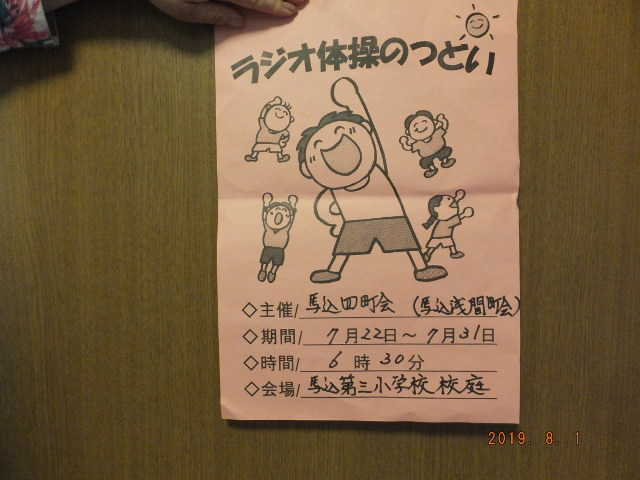 ラジオ体操のつどい
◇主催/馬込四町会 (馬込浅間町会)
◇期間/7月22日~7月31日
◇時間/6時30分
◇会場/馬込第三小学校校庭
2019. 8. 1